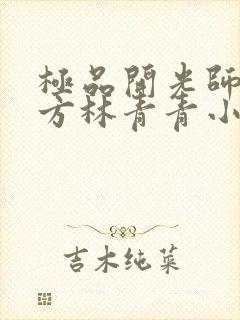 極品開光師
方林青青小
吉木纯菜